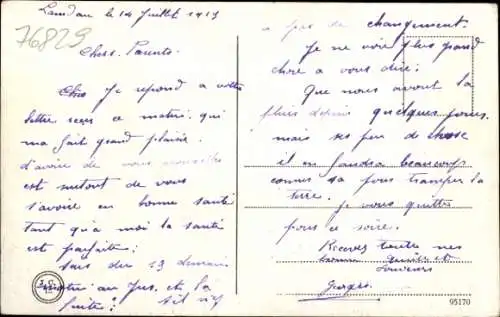 Landau le 14 Juillet 1919
76829
Chers Parents
Je repond a votre
lettre reçu ce matin qui
ma fait grand plaisir
d'avoir de vous nouvelles
est surtout de vous
savoir en bonne santé
tant qu'a moi la santé
est parfaite.
du 13
et la
suite: s'il n'y
a pas de changement.
Je ne voir plus grand
chose a vous dire.
Que nous avont la
pluis depuis quelques jours
mais peu de chose
il en faudra beaucoup
comme sa pour tremper la
terre. Je vous quitte
pour ce soir.
Recevez toute mes
et
Georges
95170